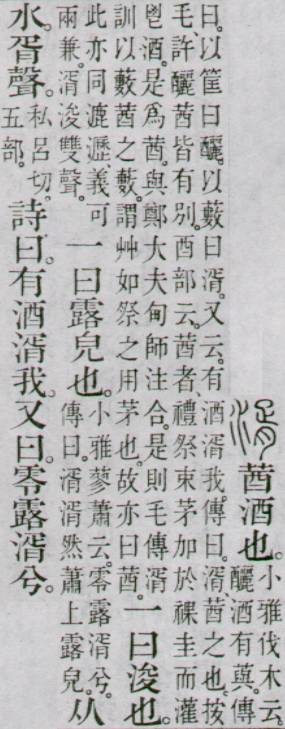 湑莤酒也。小雅伐木云。
釃酒有藇。傳
曰。以筐曰釃。以藪曰湑。又云。有酒湑我。傳曰。湑、莤之也。按
毛、許釃莤皆有別。酉部云。莤者、禮祭束茅加於祼圭而灌
鬯酒。是爲莤。與鄭大夫甸師注合。是則毛傳湑
訓以藪莤之。藪謂艸。如祭之用茅也。故亦曰莤。
一曰浚也。
此亦同漉瀝。義可
兩兼。湑浚雙聲。
一曰露皃也。
小雅蓼蕭云。零露湑兮。
傳曰。湑湑然蕭上露皃。
从
水。胥聲。
私呂切。
五部。
詩曰。有酒湑我。又曰。零露湑兮。